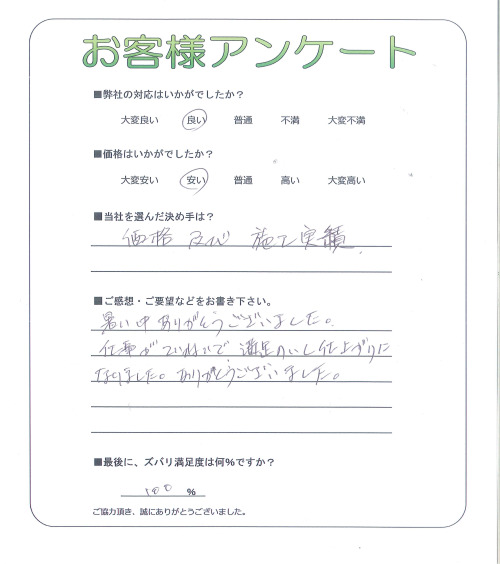 お客様アンケート
■弊社の対応はいかがでしたか？
大変良い 良い 普通 不満 大変不満
■価格はいかがでしたか？
大変安い 安い 普通 高い 大変高い
■当社を選んだ決め手は？
価格 及び 施工実績
■ご感想・ご要望などをお書き下さい。
暑い中ありがとうございました。
仕事がていねいで 満足のいく仕上がりに
なりました。ありがとうございました。
■最後に、ズバリ満足度は何%ですか？
100 %
ご協力頂き、誠にありがとうございました。